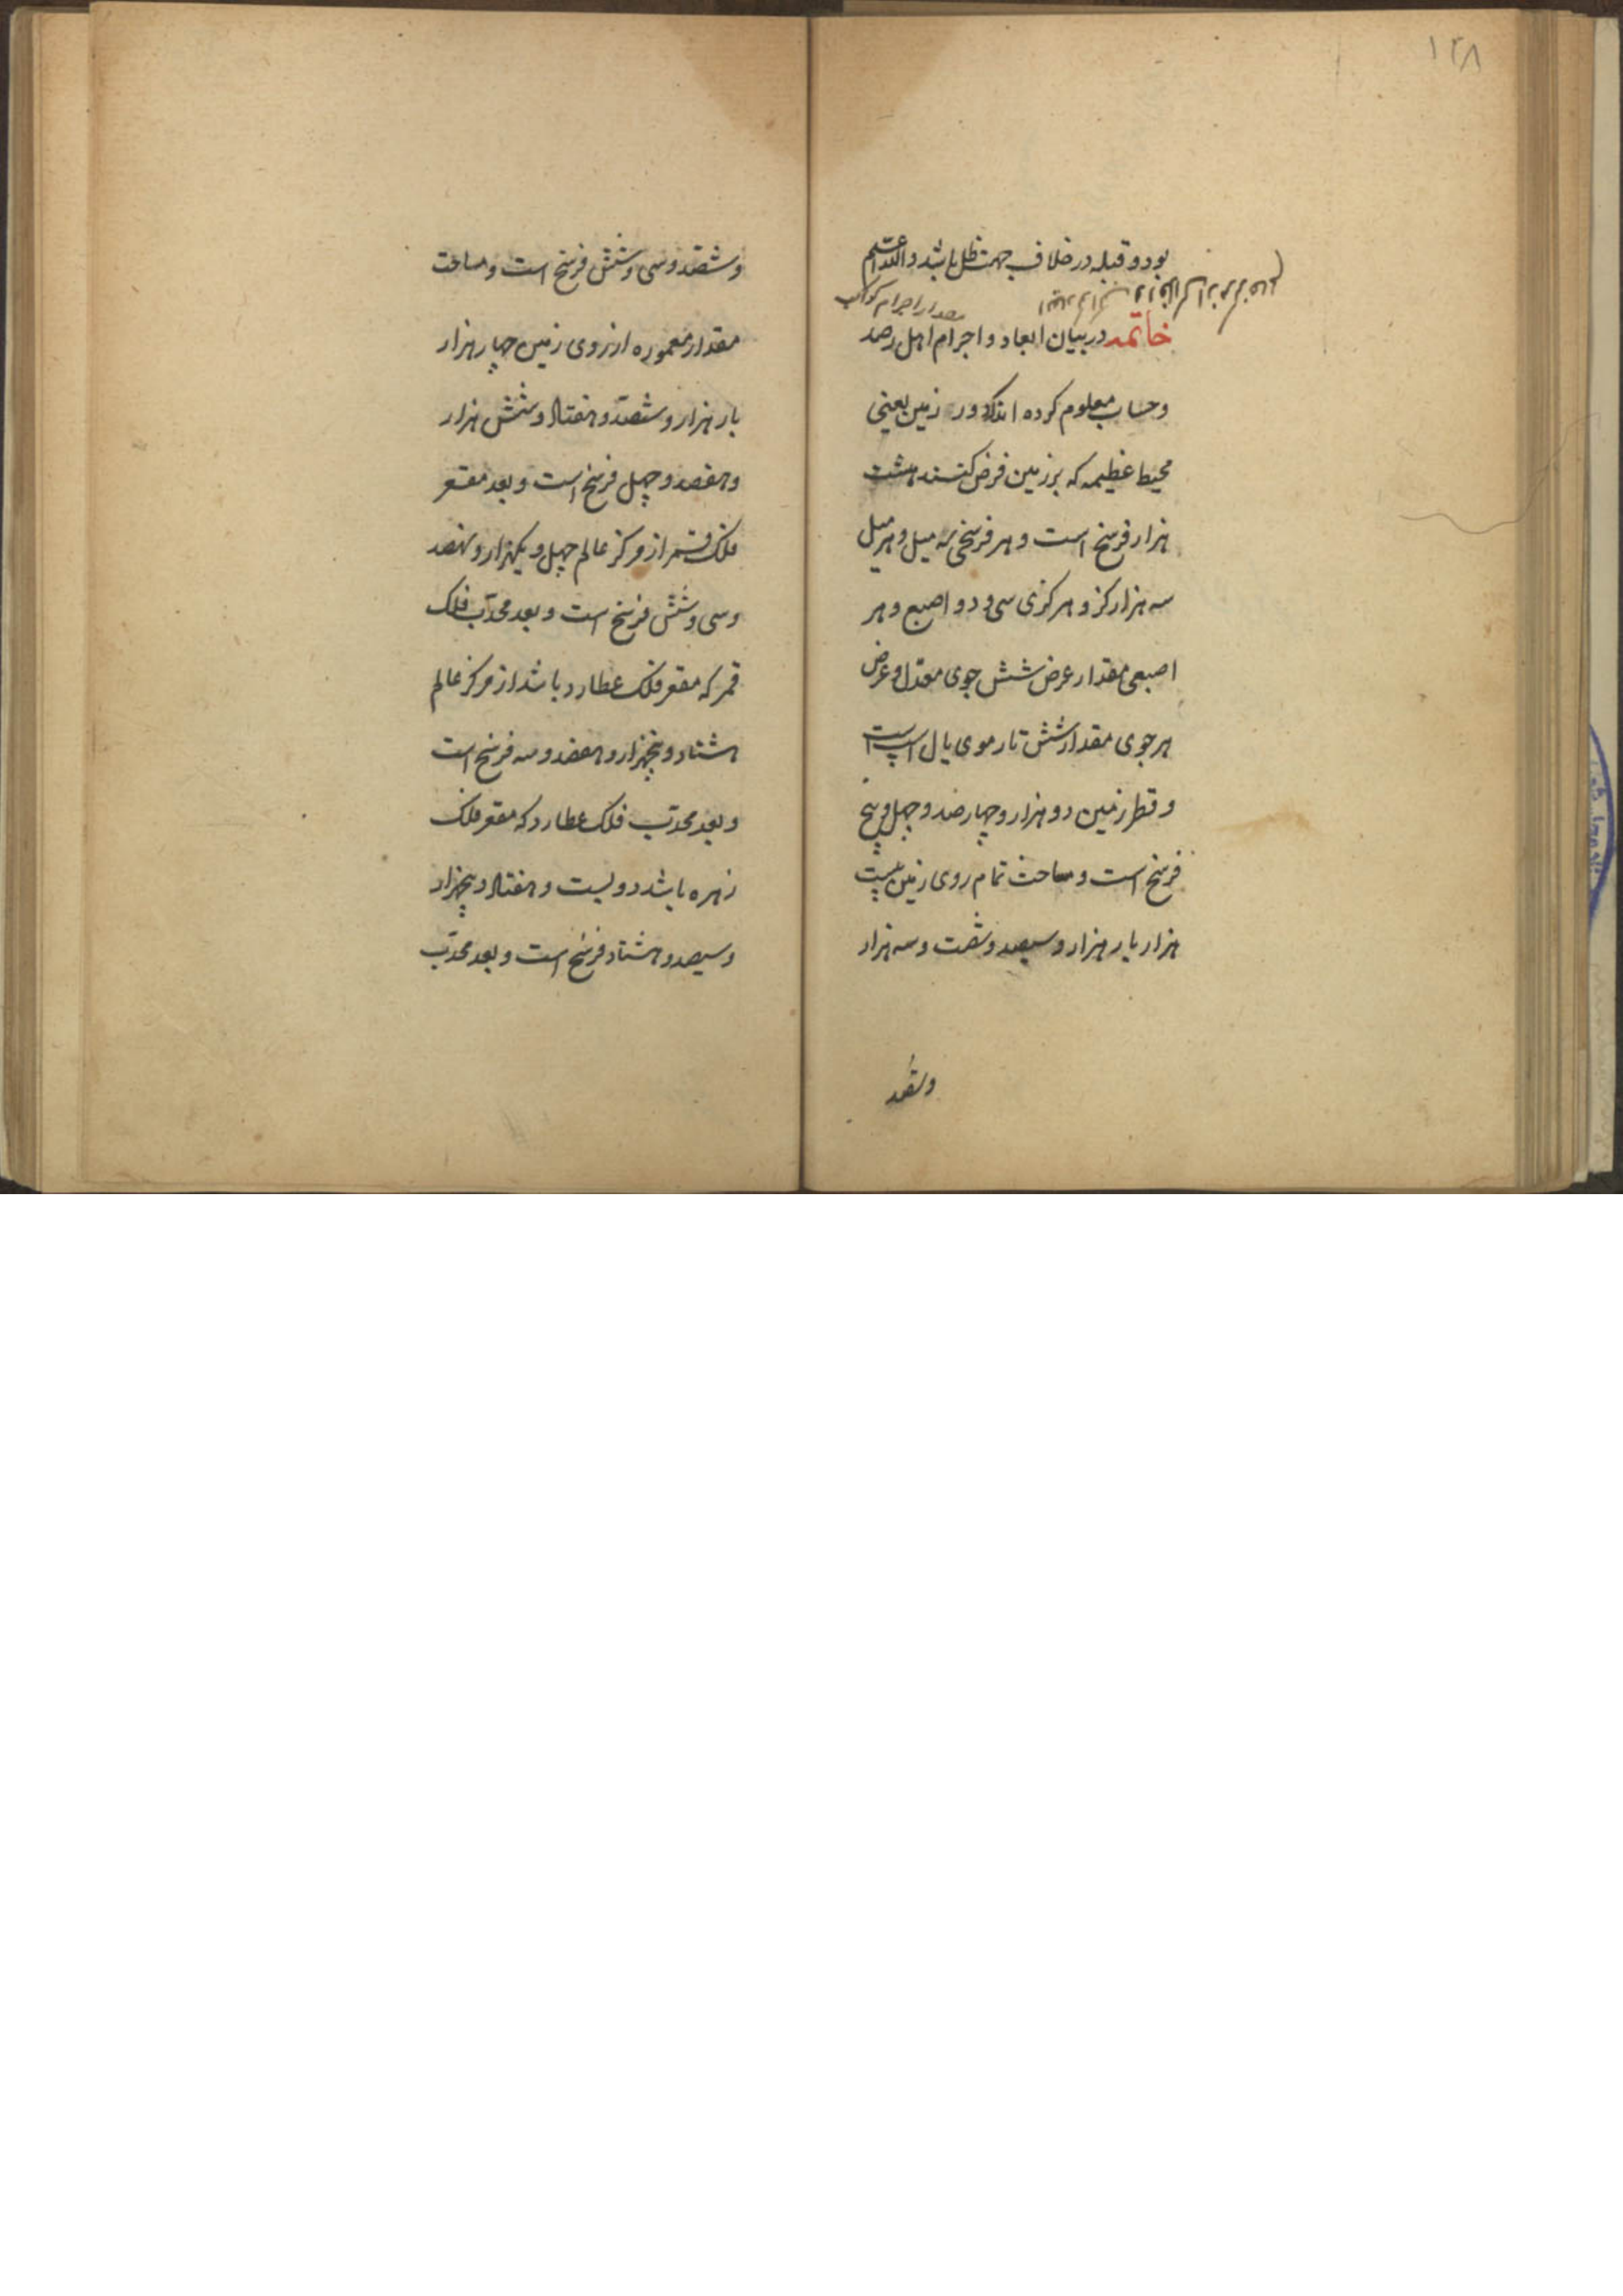 ۱۲۸
بود و قبله در خلاف جهت ظل باشد والله اعلم
مقدار اجرام کواکب
خاتمه در بیان ابعاد و اجرام اهل رصد
و حساب معلوم کرده اند که دور زمین یعنی
محیط عظیمه که بر زمین فرض کنند هشت
هزار فرسخ است و هر فرسخی سه میل و هر میل
سه هزار کز و هر کزی سی و دو اصبع و هر
اصبعی مقدار عرض شش جوی معدّل و عرض
هر جوی مقدار شش تار موی یال اسپ است
و قطر زمین دو هزار و چهارصد و چهل و پنج
فرسخ است و مساحت تمام روی زمین بیست
هزار بار هزار و سیصد و شصت و سه هزار
وششصد
وششصد و سی و شش فرسخ است و مساحت
مقدار معموره از روی زمین چهار هزار
بار هزار و ششصد و هفتاد و شش هزار
و هفصد و چهل فرسخ است و بعد مقعر
فلک قمر از مرکز عالم چهل و یکهزار و نهصد
و سی و شش فرسخ است و بعد محدّب فلک
قمر که مقعر فلک عطارد باشد از مرکز عالم
هشتاد و پنجهزار و هفصد و سه فرسخ است
و بعد محدّب فلک عطارد که مقعر فلک
زهره باشد دویست و هفتاد و پنجهزار
و سیصد و هشتاد فرسخ است و بعد محدّب